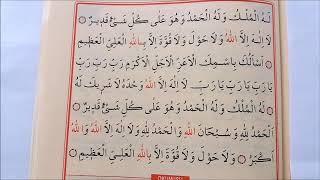 لَهُ الْمُلْكُ وَلَهُ الْحَمْدُ وَهُوَ عَلَى كُلِّ شَيْءٍ قَدِيرٌ
لَا اِلٰهَ اِلَّا اللّٰهُ وَلَا حَوْلَ وَلَا قُوَّةَ اِلَّا بِاللّٰهِ الْعَلِيِّ الْعَظِيمِ
اَسْاَلُكَ بِاسْمِكَ الْاَعَزِّ الْاَجَلِّ الْاَكْرَمِ رَبِّ رَبِّ رَبِّ
يَا رَبِّ يَا رَبِّ يَا رَبِّ لَا اِلٰهَ اِلَّا اللّٰهُ وَحْدَهُ لَا شَرِيكَ لَهُ
لَهُ الْمُلْكُ وَلَهُ الْحَمْدُ وَهُوَ عَلَى كُلِّ شَيْءٍ قَدِيرٌ
اَلْحَمْدُ لِلّٰهِ وَسُبْحَانَ اللّٰهِ وَالْحَمْدُ لِلّٰهِ وَلَا اِلٰهَ اِلَّا اللّٰهُ وَاللّٰهُ
اَكْبَرُ وَلَا حَوْلَ وَلَا قُوَّةَ اِلَّا بِاللّٰهِ الْعَلِيِّ الْعَظِيمِ